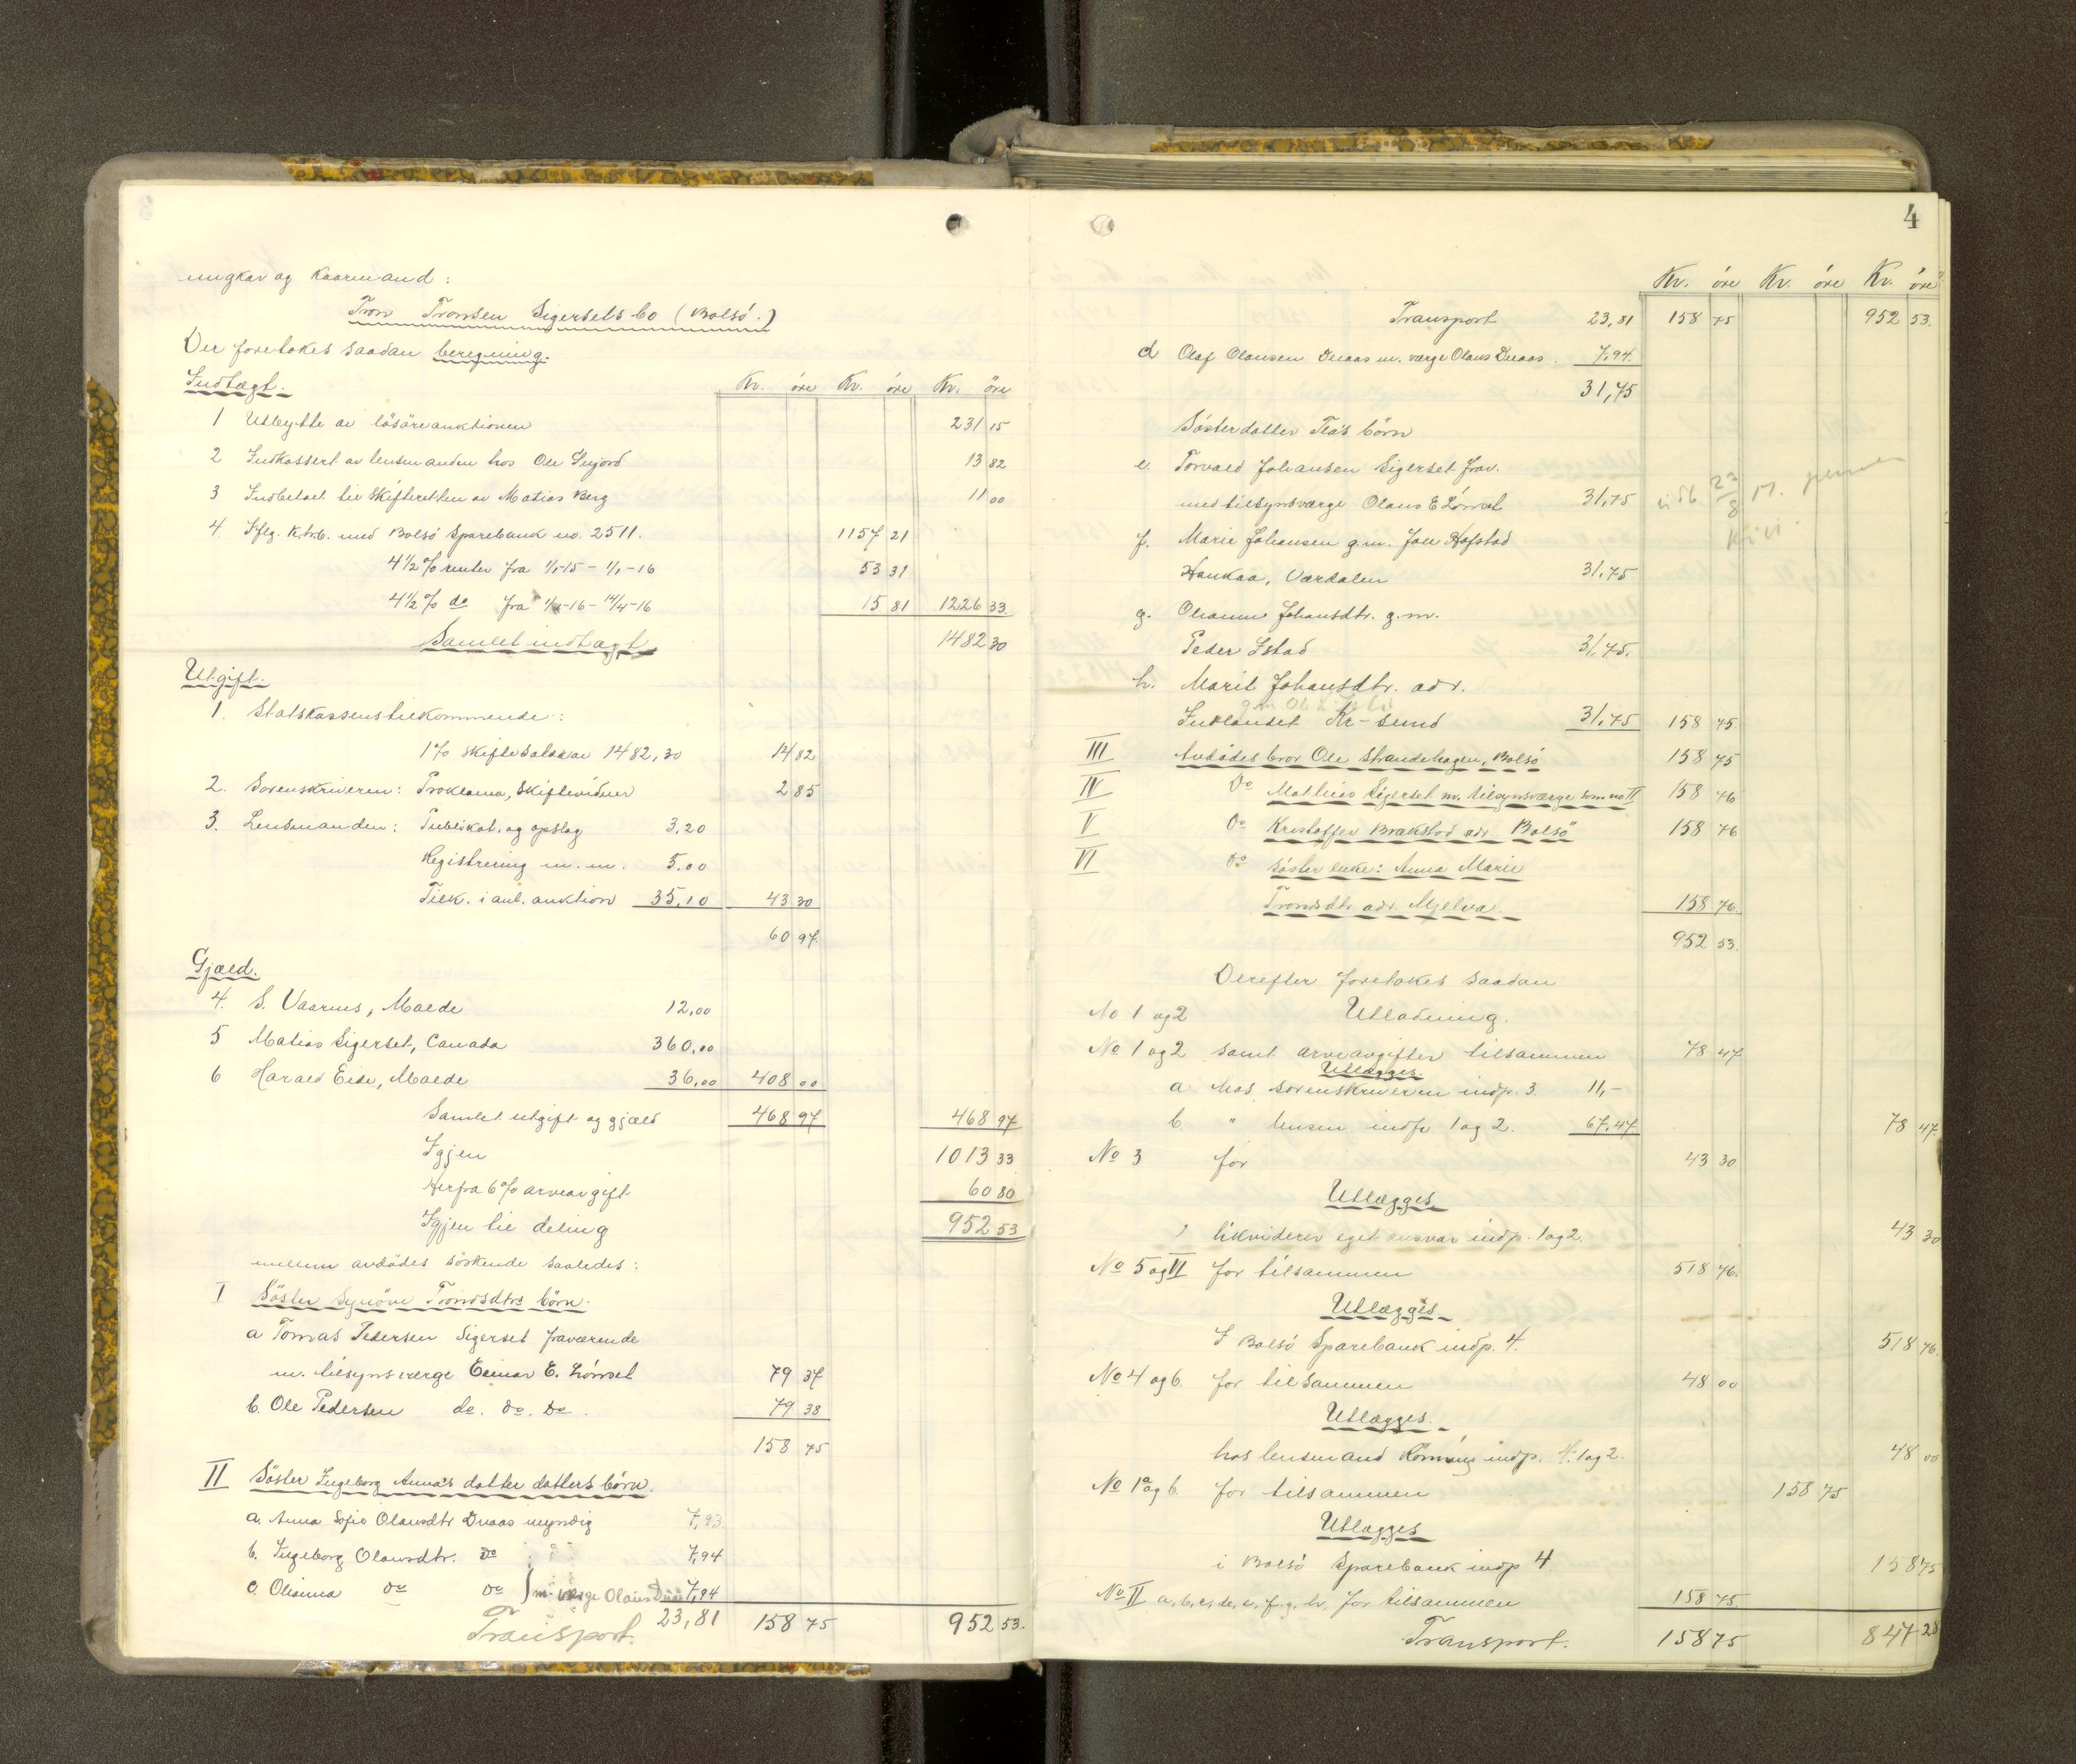 ungkar og Kaarmand:
Tron Tronsen Sigersets bo (Bolsö.)
Der foretokes saadan beregning.
Indtægt.
Kr. öre Kr. öre Kr. öre
1 Utbytte av lösöreauktionen 231 15
2 Indkassert av lensmanden hos Ole 13 82
3 Indbetalt til Skifteretten av Matias Berg 11 00
4. Iflg. K.tr.b. med Bolsö Sparebank no. 2511. 1157 21
4 1/2 % renter fra 1/1-15 - 1/1-16 53 31
4 1/2 % do fra 1/1-16 - 14/4-16 15 81 1226 33.
Samlet indtægt 1482 30
Utgift.
1. Statskassens tilkommende:
1% skiftesalær av 1482,30 14 82
2. Sorenskriveren: Proklama, Skiftevidner 2 85
3. Lensmanden: Publikat. og opslag 3,20
Registrering m. m. 5,00
Tilk. i anl. auktion 35,10 43 30
60 97
Gjæld.
4. S. Vaarnes, Molde 12,00
5 Matias Sigerset, Canada 360,00
6 Harald Eide, Molde 36,00 408 00
Samlet utgift og gjæld 468 97 468 97
Igjen 1013 33
Herfra 6% arveavgift 60 80
Igjen til deling 952 53
mellem avdödes söskende saaledes:
I Söster Synöve Trondsdtrs börn.
a Tomas Pedersen Sigerset fraværende
m. tilsynsverge Einar E. Lönset 79 37
b. Ole Pedersen do. do. do. 79 38
158 75
II Söster Ingeborg Anna's datter datters börn.
a. Anna Sofie Olausdtr Duaas myndig 7,93
b. Ingeborg Olausdtr. do 7,94
c. Olianna do do m. verge Olaus Duaas 7,94
Transport. 23,81 158 75 952 53.
4
Kr. öre Kr. öre Kr. öre
Transport 23,81 158 75 952 53.
d Olaf Olausen Duaas m. værge Olaus Duaas. 7,94.
31,75
Sösterdatter Tea's börn
e. Torvald Johansen Sigerset frav.
med tilsynsværge Olaus E Lönset 31,75
f. Marie Johansen g.m. Jon Hofstad
Haukaa, Værdalen 31,75
g. Olianna Johansdtr. g. m.
Peder Istad 31,75.
h. Marit Johansdtr. adr.
g.m.
Indlandet Kr-sund 31,75 158 75.
III Avdödes bror Ole Strandehagen, Bolsö 158 75
IV Do Mathias Sigerset m. tilsynsværge som no II 158 76
V Do Kristoffer Brækstad adr. Bolsö 158 76
VI do söster enke: Anna Marie
Trondsdtr. adr. Mjelva. 158 76.
952 53.
Derefter foretokes saadan
No 1 og 2 Utlodning.
No 1 og 2 samt arveavgiften tilsammen 78 47
Utlægges.
a Hos Sorenskriveren indp. 3. 11,-
b. " lensm indp 1 og 2. 67,47 78 47.
No 3 for 43 30
Utlægges
likviderer eget ansvar indp. 1 og 2. 43 30
No 5 og VI for tilsammen 518 76.
Utlægges
I Bolsö Sparebank indp. 4. 518 76.
No 4 og 6. for tilsammen 48 00
Utlægges.
hos lensmand indp. 1 og 2. 48 00
No 1 a og b. for tilsammen 158 75
Utlægges
i Bolsö Sparebank indp 4. 158 75
No II a, b, c, d, e, f, g, h, for tilsammen 158 75.
Transport. 158 75 847 28